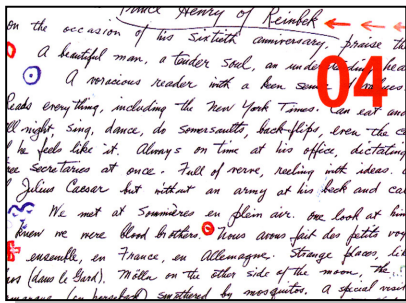 Prince Henry of Reinbek
on the occasion of his Sixtieth anniversary, praise th
A beautiful man, a tender Soul, an understanding hea
A voracious reader with a keen sense values
04
eads everything, including the New York Times. Can eat and
ll night sing, dance, do Somersaults, back-flips, even the c
he feels like it. Always on time at his office dictating
ree Secretaries at once. Full of verve, reeling with ideas. a
Julius Caesar but without an army at his beck and ca
We met at Sommières en plein air. One look at him
knew we were blood brothers. Nous avons fait des petits voy
ensemble, en France, en Allemagne. Strange places, lik
(dans le Gard). Mölln on the other side of the moon, the
(on horseback) smothered by mosquitos. A special visit